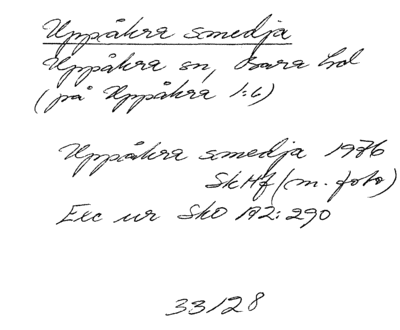 Uppåkra smedja
Uppåkra sn, Bara hd
(på Uppåkra 1:6)
Uppåkra smedja 1976
SkHf (m. foto)
Exc ur SkO 192:290
33128